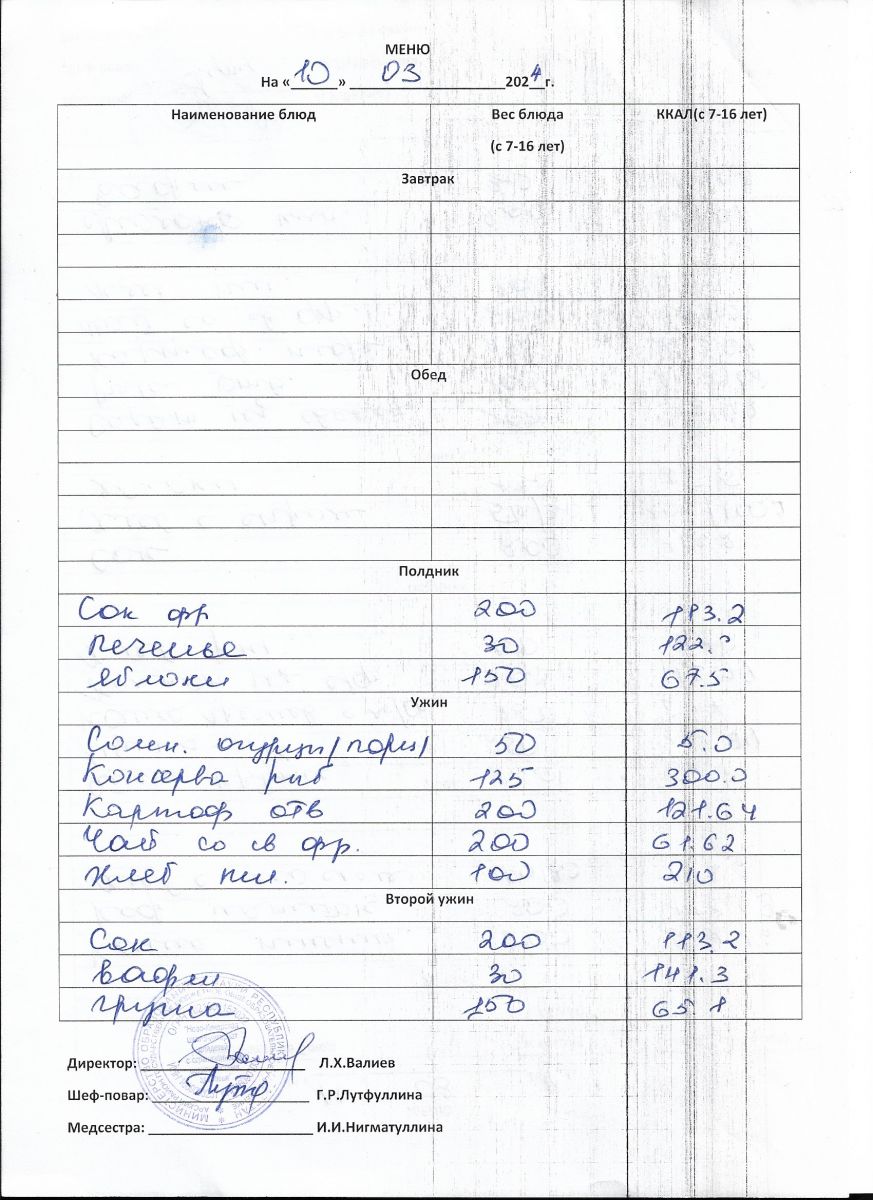 МЕНЮ
На «10» 03 2024г.
Наименование блюд Вес блюда (с 7-16 лет) ККАЛ(с 7-16 лет)
Завтрак
Обед
Полдник
Сок фр 200 113.2
Печенье 30 122.
Яблоки 150 67.5
Ужин
Солен. огурцы/порц/ 50 5.0
Консерва рыб 125 300.0
Картоф отв 200 121.64
Чай со св фр. 200 61.62
Хлеб пш. 100 210
Второй ужин
Сок 200 113.2
Вафли 30 141.3
Груша 150 65.1
Директор: Л.Х.Валиев
Шеф-повар: Г.Р.Лутфуллина
Медсестра: И.И.Нигматуллина